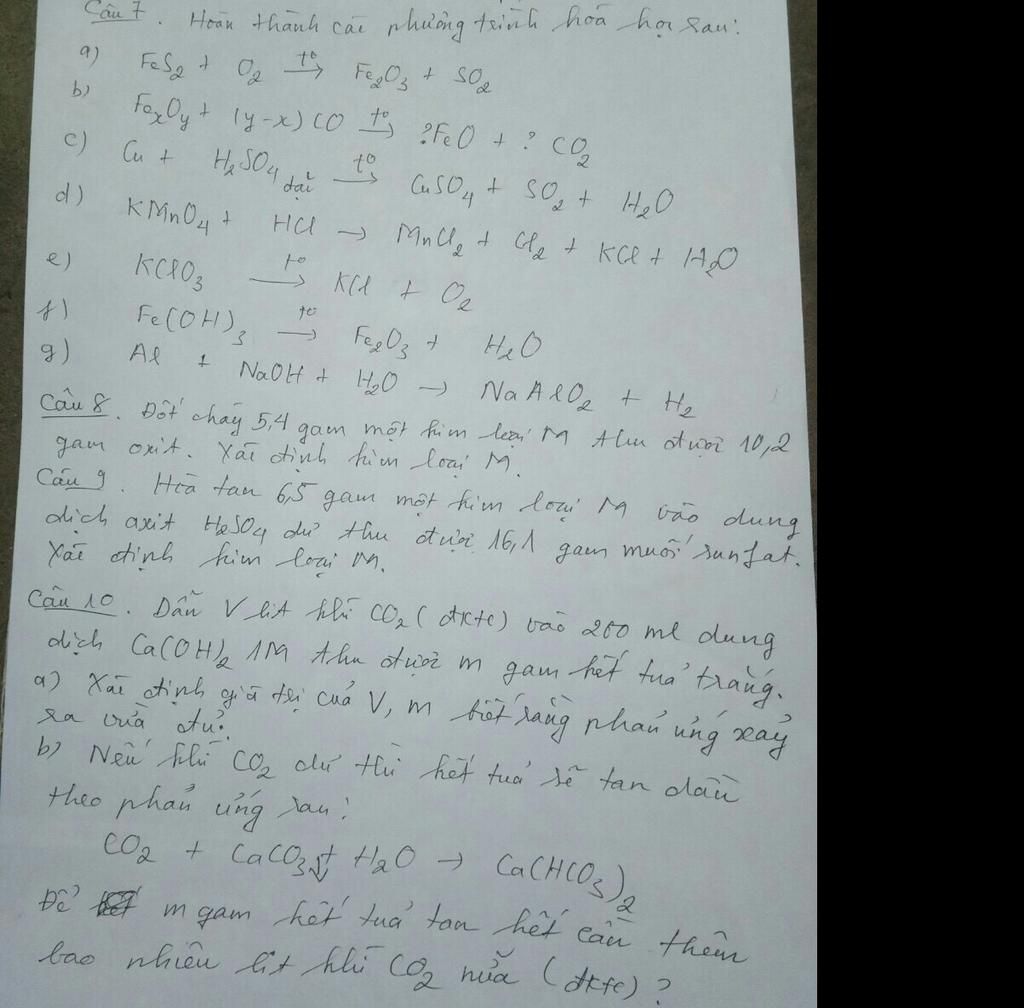 Câu 7. Hoàn thành các phương trình hoá học sau:
a) FeS₂ + O₂ →(t°) Fe₂O₃ + SO₂
b) FexOy + (y-x)CO →(t°) ?FeO + ? CO₂
c) Cu + H₂SO₄ đặc →(t°) CuSO₄ + SO₂ + H₂O
d) KMnO₄ + HCl → MnCl₂ + Cl₂ + KCl + H₂O
e) KClO₃ →(t°) KCl + O₂
f) Fe(OH)₃ →(t°) Fe₂O₃ + H₂O
g) Al + NaOH + H₂O → NaAlO₂ + H₂
Câu 8. Đốt cháy 5,4 gam một kim loại M thu được 10,2
gam oxit. Xác định kim loại M.
Câu 9. Hoà tan 6,5 gam một kim loại M vào dung
dịch axit H₂SO₄ dư thu được 16,1 gam muối sunfat.
Xác định kim loại M.
Câu 10. Dẫn V lit khí CO₂ (đktc) vào 200 ml dung
dịch Ca(OH)₂ 1M thu được m gam kết tuả trắng.
a) Xác định giá trị cuả V, m biết rằng phản ứng xảy
ra vừa đủ.
b) Nếu khí CO₂ dư thì kết tuả sẽ tan dần
theo phản ứng sau:
CO₂ + CaCO₃↓ + H₂O → Ca(HCO₃)₂
Để m gam kết tuả tan hết cần thêm
bao nhiêu lit khí CO₂ nữa (đktc)?